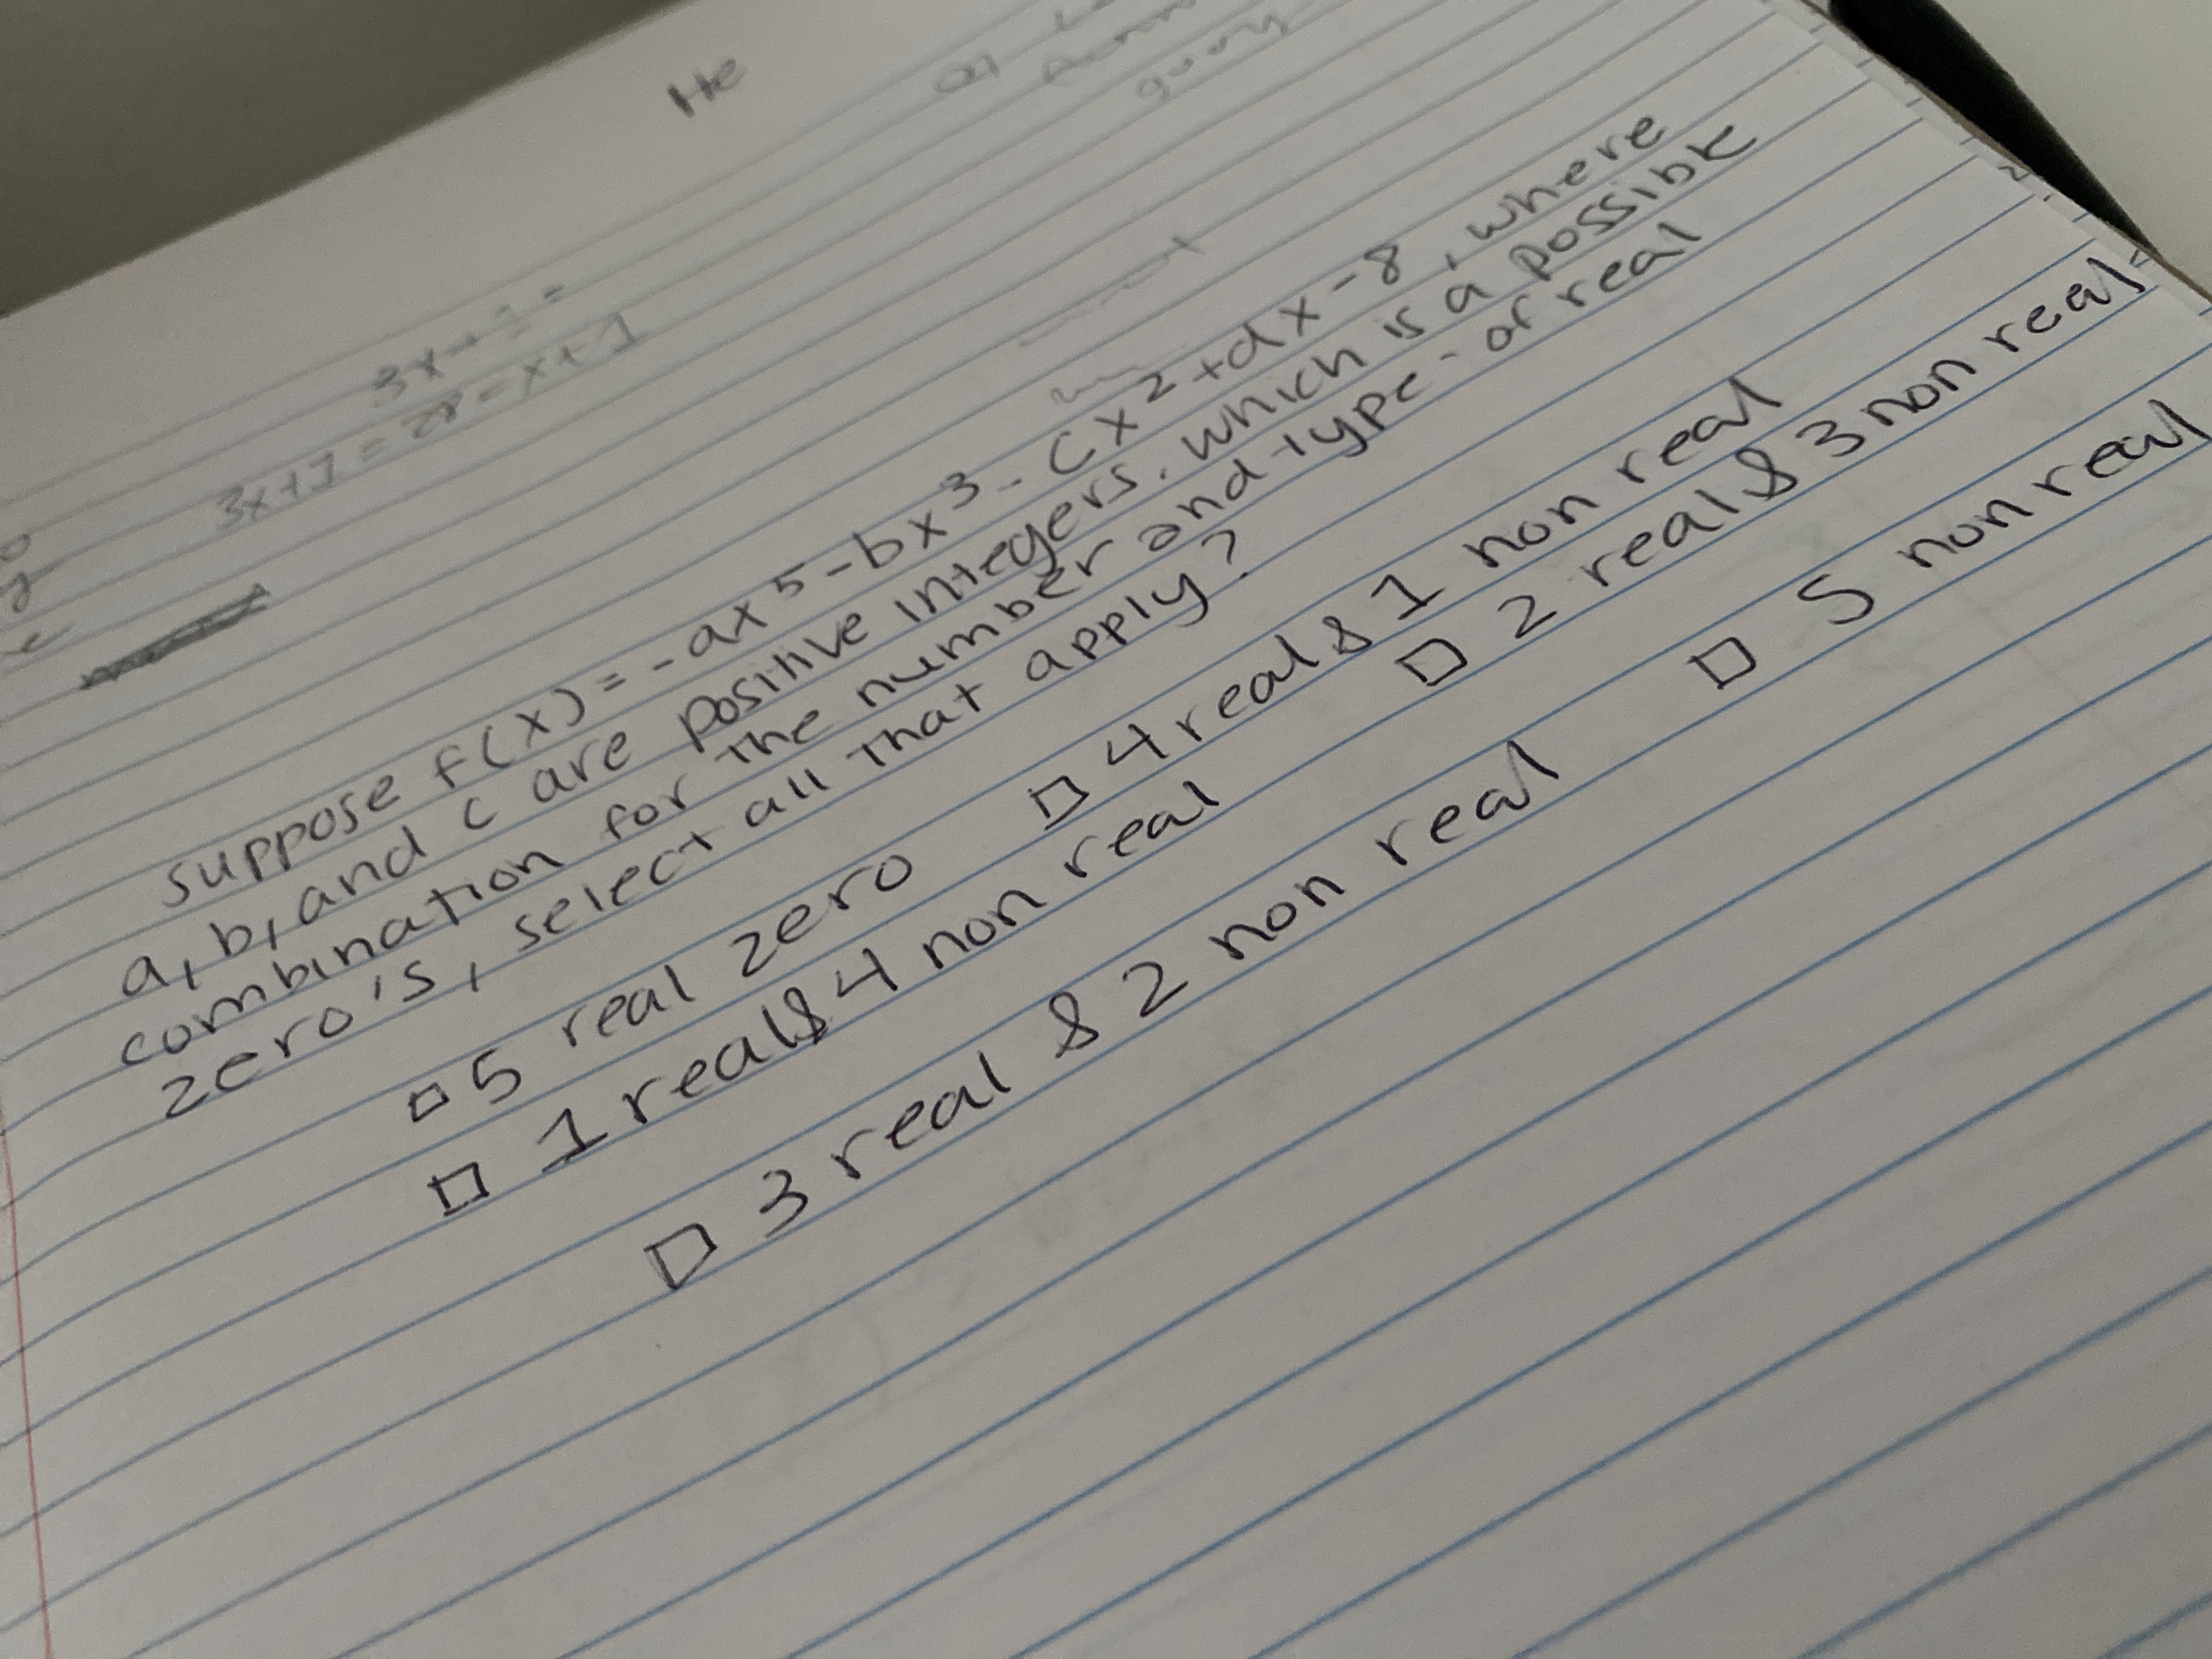 He
3x+1=
3x+1=2x=x+1
suppose f(x)=-ax^5-bx^3-cx^2+dx-8, where
a, b, and c are positive integers. which is a possible
combination for the number and type- of real
zero's, select all that apply?
□ 5 real zero □ 4 real & 1 non real
□ 1 real & 4 non real □ 2 real & 3 non real
□ 3 real & 2 non real □ 5 non real